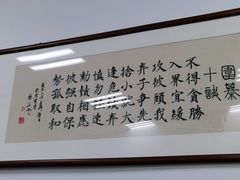 圍棊十訣
不得貪勝
入界宜緩
攻彼顧我
弃子爭先
捨小就大
逢危須棄
慎勿輕速
動須相應
彼强自保
勢孤取和